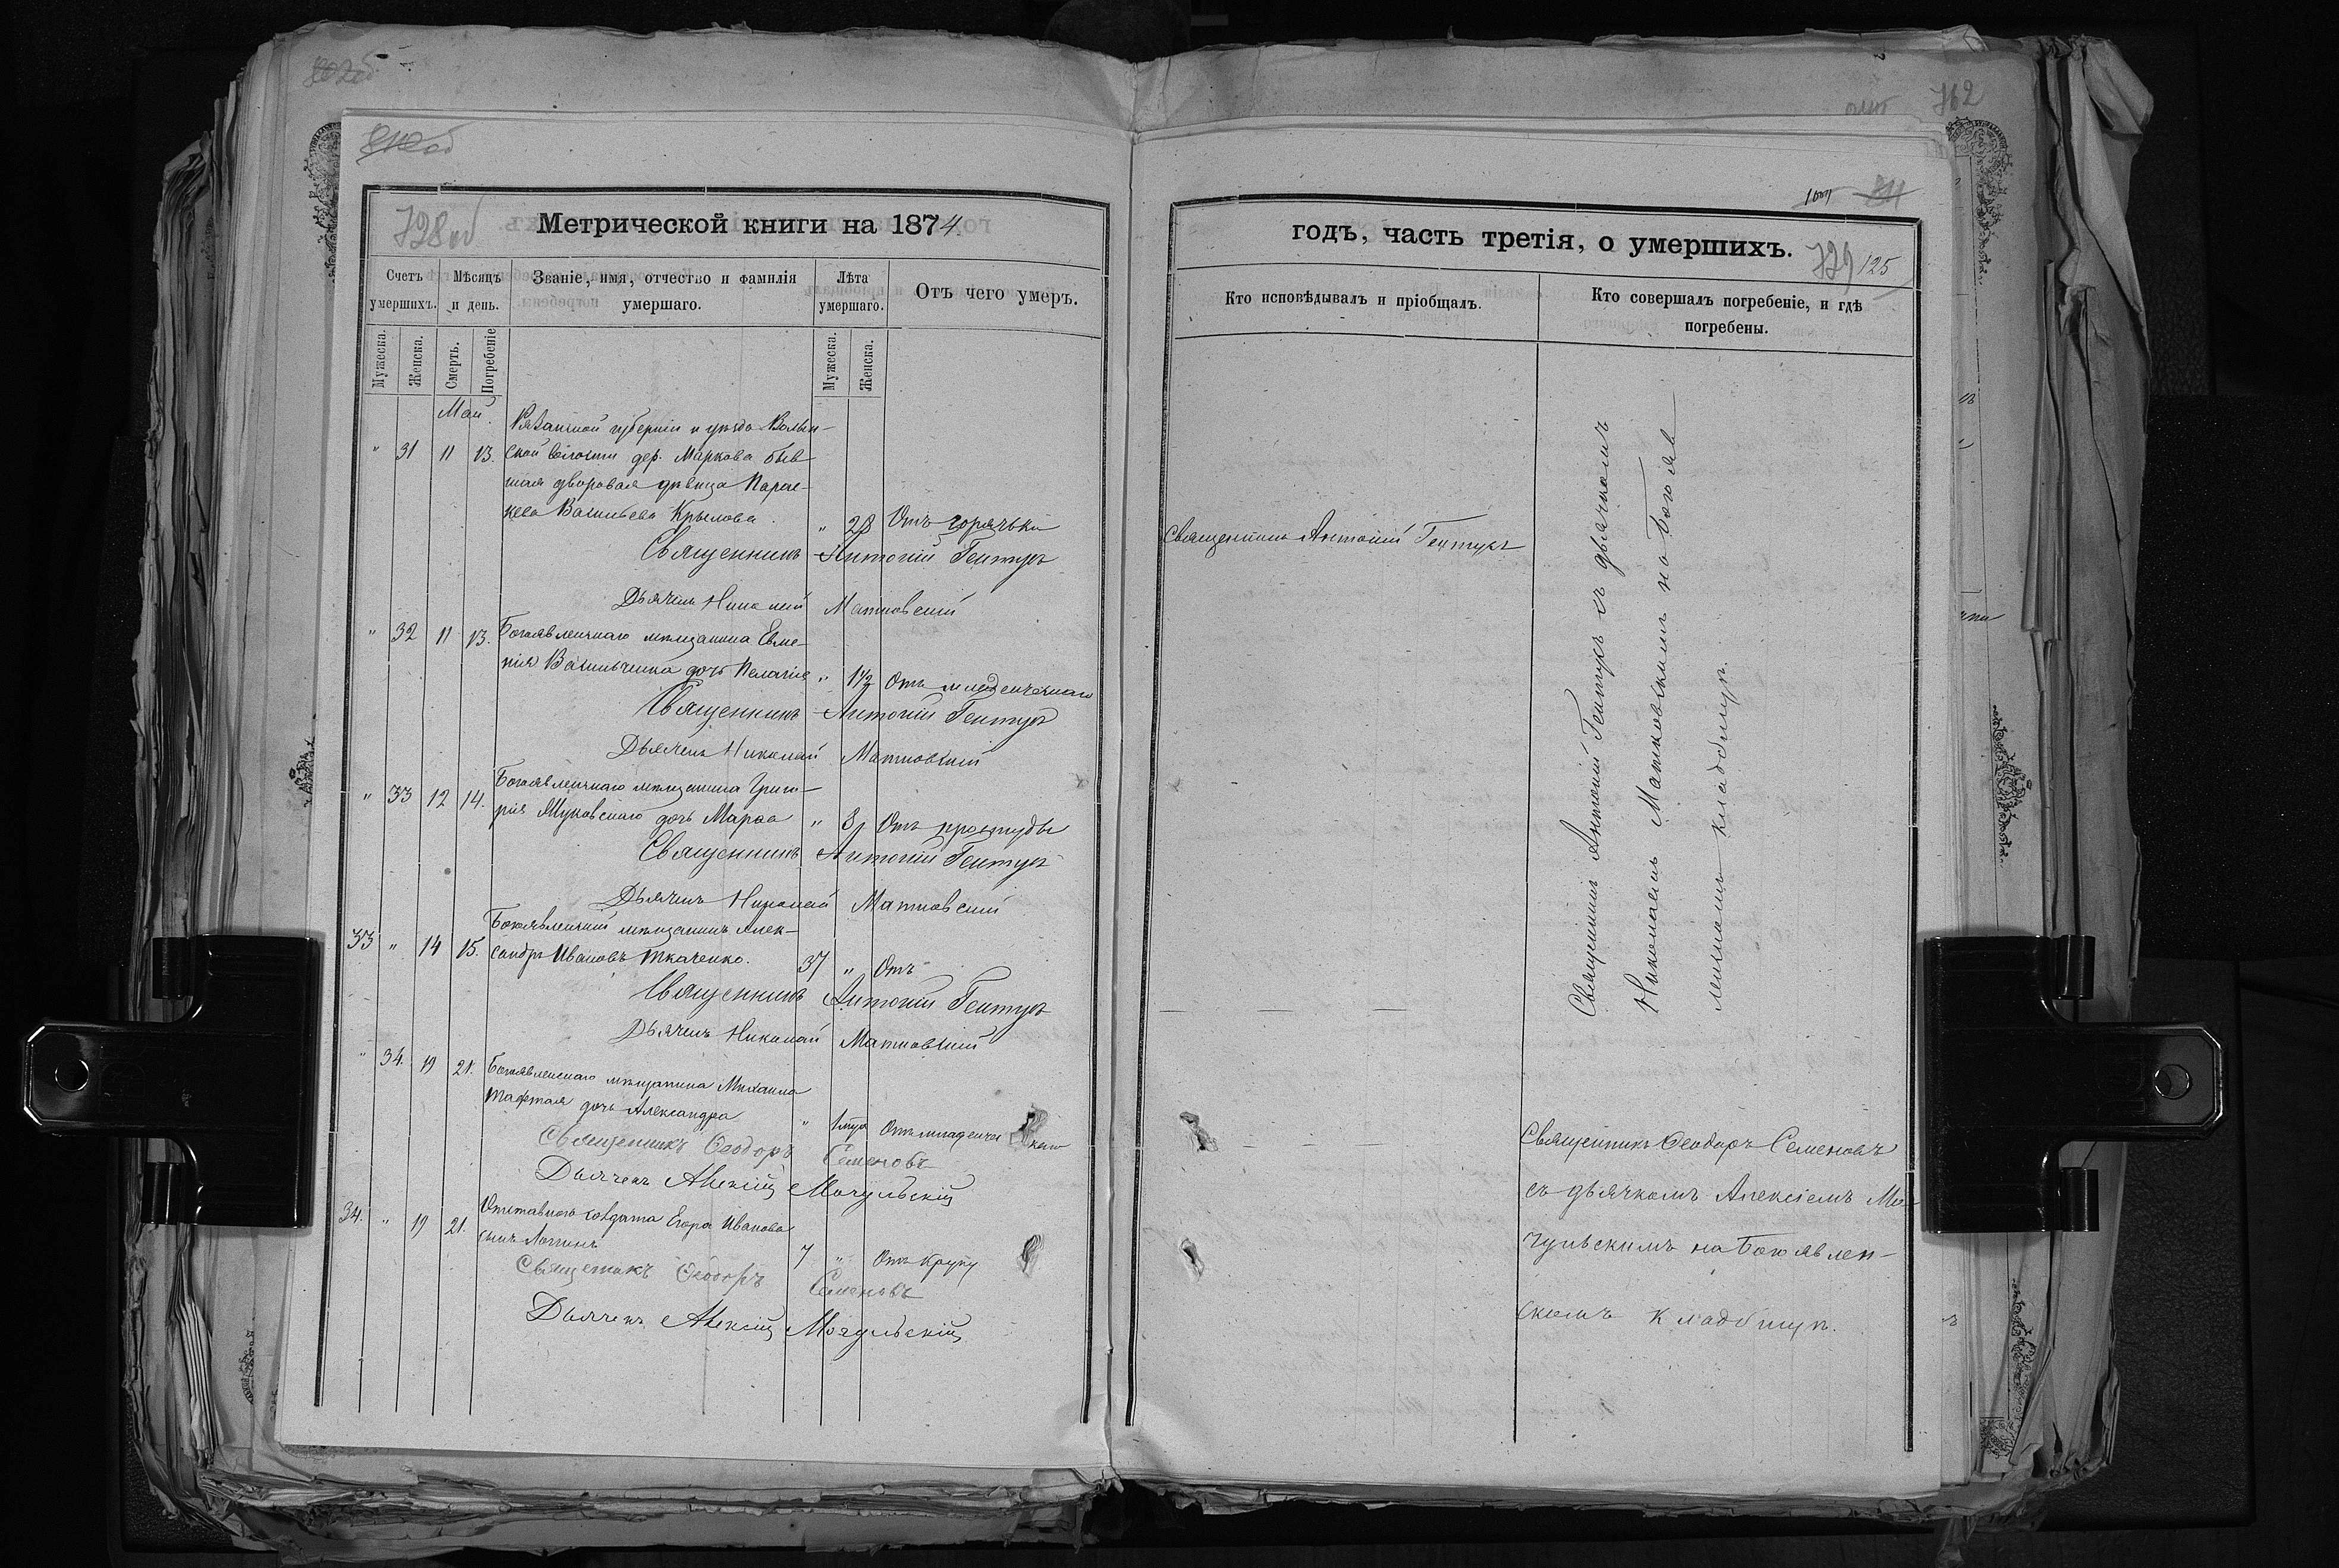 728об
Метрической книги на 1874
Счетъ умершихъ.
Мѣсяцъ и день.
Званіе, имя, отчество и фамилія умершаго.
Лѣта умершаго.
Отъ чего умеръ.
Мужеска.
Женска.
Смерть.
Погребеніе
Мужеска.
Женска.
Май
Рязанской губерніи и уѣзда
" 31 11 13. ской волости дер. Маркова быв-
шая дворовая дѣвица Парас-
кева Васильева Крылова. " 28 Отъ горячьки
Священникъ Антоній Гентукъ
Дьячекъ Николай Матковскій
" 32 11 13. Богоявленнаго мѣщанина Евме-
нія Васильченка дочь Пелагія " 1 1/2 Отъ младенческаго
Священникъ Антоній Гентукъ
Дьячекъ Николай Матковскій
" 33 12 14. Богоявленнаго мѣщанина Григо-
рія Жуковскаго дочь Марѳа " 8 Отъ простуды
Священникъ Антоній Гентукъ
Дьячекъ Николай Матковскій
33 " 14 15. Богоявленскій мѣщанинъ Алек-
сандръ Ивановъ Ткаченко. 37 " Отъ
Священникъ Антоній Гентукъ
Дьячекъ Николай Матковскій
" 34. 19 21. Богоявленскаго мѣщанина Михаила
дочь Александра " Отъ младенческаго
Священникъ Ѳеодоръ Семеновъ
Дьячекъ Алексій Мочульскій
34. " 19 21. Отставного солдата Егора Иванова
сынъ Логинъ 7 " Отъ крупу
Священникъ Ѳеодоръ Семеновъ
Дьячекъ Алексій Мочульскій
762
годъ, часть третія, о умершихъ.
729 125
Кто исповѣдывалъ и пріобщалъ.
Кто совершалъ погребеніе, и гдѣ погребены.
Священникъ Антоній Гентукъ
Священникъ Антоній Гентукъ съ дьячкомъ
Николаемъ Матковскимъ на Богояв
ленскомъ кладбищѣ.
Священникъ Ѳеодоръ Семеновъ
съ дьячкомъ Алексіемъ Мо-
чульскимъ на Богоявлен-
скомъ кладбищѣ.